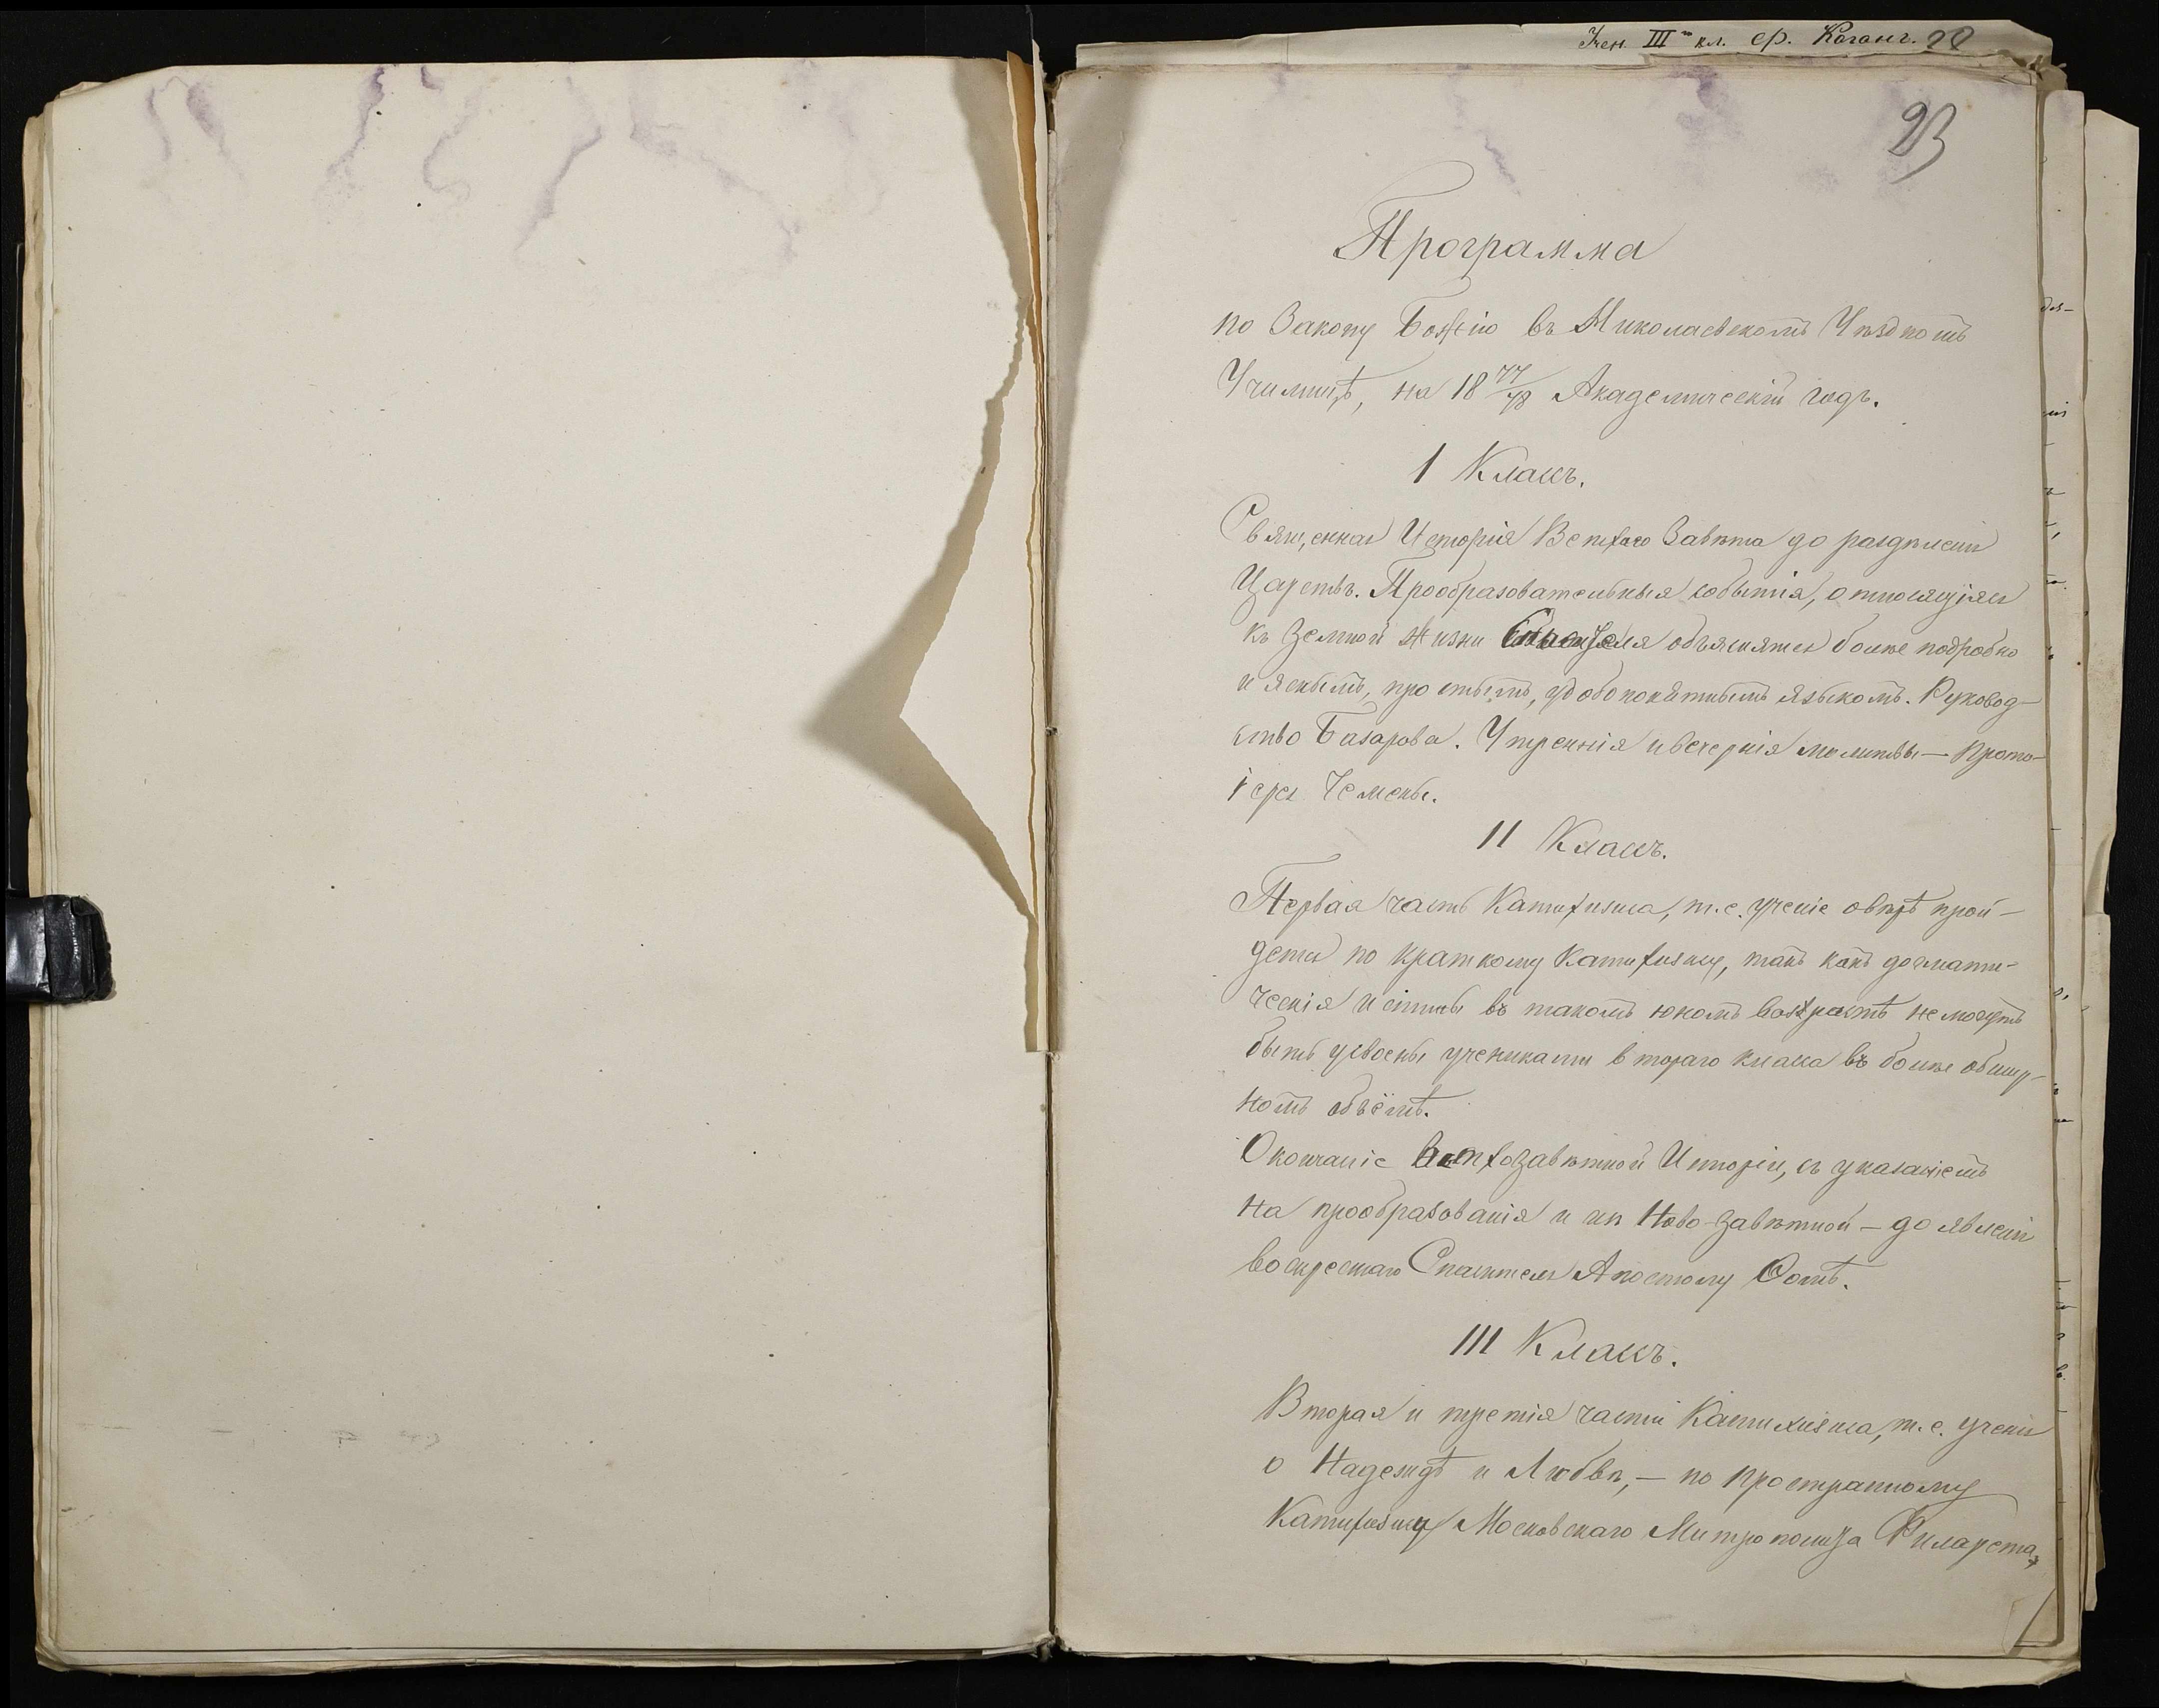 Учен. III го кл. ср. Коганъ. 22
23
Программа
по Закону Божію въ Николаевскомъ Уѣздномъ
Училищѣ, на 18 77/78 Академическій годъ.
I Классъ.
Священная Исторія Ветхаго Завѣта до раздѣленія
Царствъ. Прообразовательныя событія, относящіяся
къ земной жизни Спасителя объяснятся болѣе подробно
и яснымъ, простымъ, удобопонятнымъ языкомъ. Руковод-
ство Базарова. Утреннія и вечернія молитвы — Прото-
іерея Чемены.
II Классъ.
Первая часть Катихизиса, т. е. ученіе о вѣрѣ прой-
дется по краткому Катихизису, такъ какъ догмати-
ческія истины въ такомъ юномъ возрастѣ не могутъ
быть усвоены учениками втораго класса въ болѣе обшир-
номъ объёмѣ.
Окончаніе Ветхозавѣтной Исторіи, съ указаніемъ
на прообразованія и Ново-завѣтной — до явленія
воскресшаго Спасителя Апостолу Ѳомѣ.
III Классъ.
Вторая и третія части Катихизиса, т. е. ученія
о Надеждѣ и Любви, — по пространному
Катихизису Московскаго Митрополита Филарета,